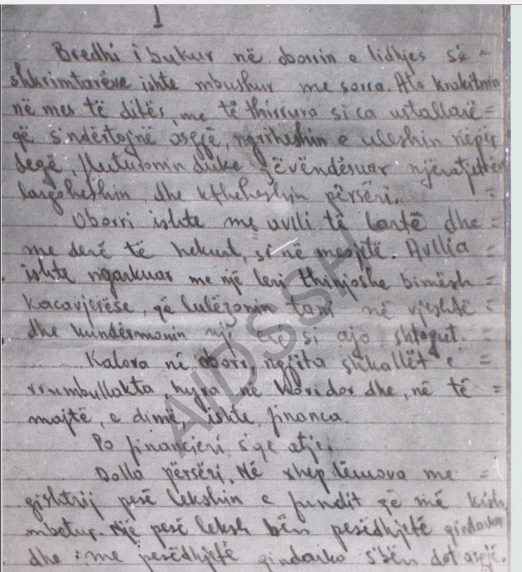 I
Bredhi i bukur në oborrin e lidhjes së
shkrimtarëve ishte mbushur me sorra. Ato krokitnin
në mes të ditës, me të thirrura si ca ustallarë
që s'ndërtojnë asgjë, ngriheshin e uleshin nëpër
degë, fluturonin duke zëvëndësuar njëratjetrën
largoheshin dhe ktheheshin përsëri.
Oborri ishte me avlli të lartë dhe
me derë të hekurt, si në mesjetë. Avllia
ishte ngarkuar me një lloj bimësh
kacavjerëse, që lulëzonin tani në vjeshtë
dhe kundërmonin një si ajo shtogut.
Kalova në oborr, ngjita shkallët e
rrumbullakta, hyra në korridor dhe, në të
majtë, e dimë, ishte financa.
Po financieri s'qe atje.
Dolla përsëri. Në xhep lëmova me
gishtrij pesë lekshin e fundit që më kish
mbetur. Një pesë leksh bën pesëdhjetë qindarka
dhe me pesëdhjetë qindarka s'bën dot asgjë.
AIDSSH